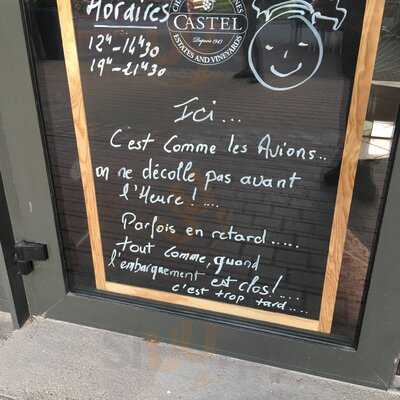 Horaires
12h-14h30
19h-21h30
CASTEL
Depuis 1949
ESTATES AND VINEYARDS
Ici...
C'est Comme les Avions..
on ne décolle pas avant
l'Heure!....
Parfois en retard.....
tout comme, quand
l'embarquement est clos!....
c'est trop tard....